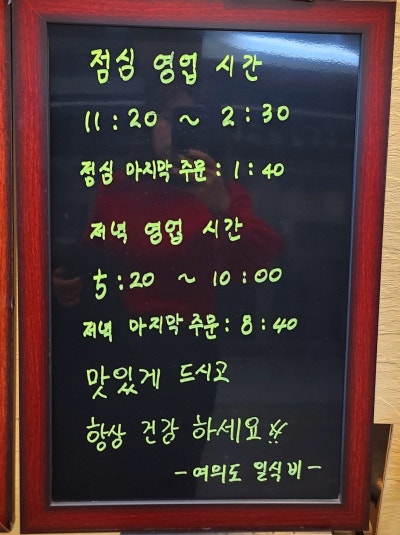 점심 영업 시간
11:20 ~ 2:30
점심 마지막 주문: 1:40
저녁 영업 시간
5:20 ~ 10:00
저녁 마지막 주문: 8:40
맛있게 드시고
항상 건강 하세요!!
- 여의도 일식비 -